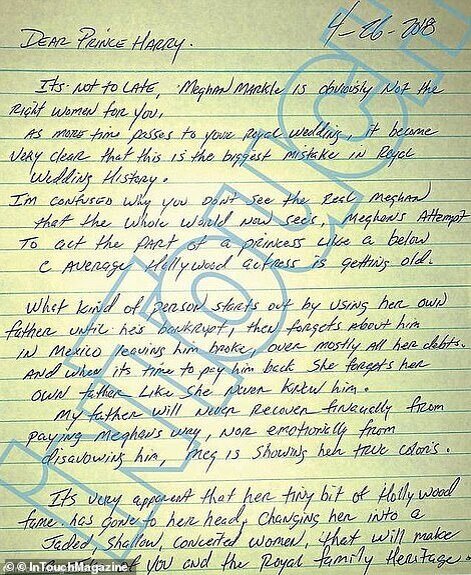 4-26-2018
DEAR PRINCE HARRY.
ITS NOT TO LATE, MEGHAN MARKLE IS obviously NOT the
Right WOMEN FOR YOU,
AS MORE TIME PASSES to your Royal Wedding, it become
very clear that this is the biggest mistake IN Royal
Wedding History.
I'M CONFUSED why you DON'T SEE the REAL MEGHAN
that the whole would now sees, Meghans Attempt
TO act the PART of A PRINCESS LIKE A below
C AVERAGE Hollywood ACTRESS is getting old.
What KIND of PERSON STARTS OUT by USING her OWN
father UNTIL he's BANKRUPT, then forgets About him
IN MEXICO leaving him broke, over mostly All her debts.
AND when its time to pay him back She forgets her
OWN father Like She Never KNEW him.
My father will Never Recover finically from
paying MEGHANS way, NOR emotionally from
disavowing him, MEG is SHOWING heh true colors.
It's very apparent that her tiny bit of Hollywood
fame has gone to her head, Changing her into a
Jaded, Shallow, conceted women, that will make
of you and the Royal family Heritage.
INTOUCH
© InTouchMagazine